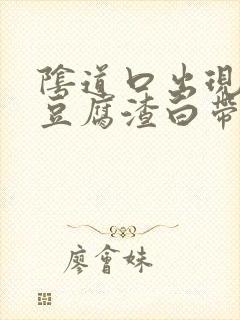 陰道口出現
豆腐渣白帶
廖會妹